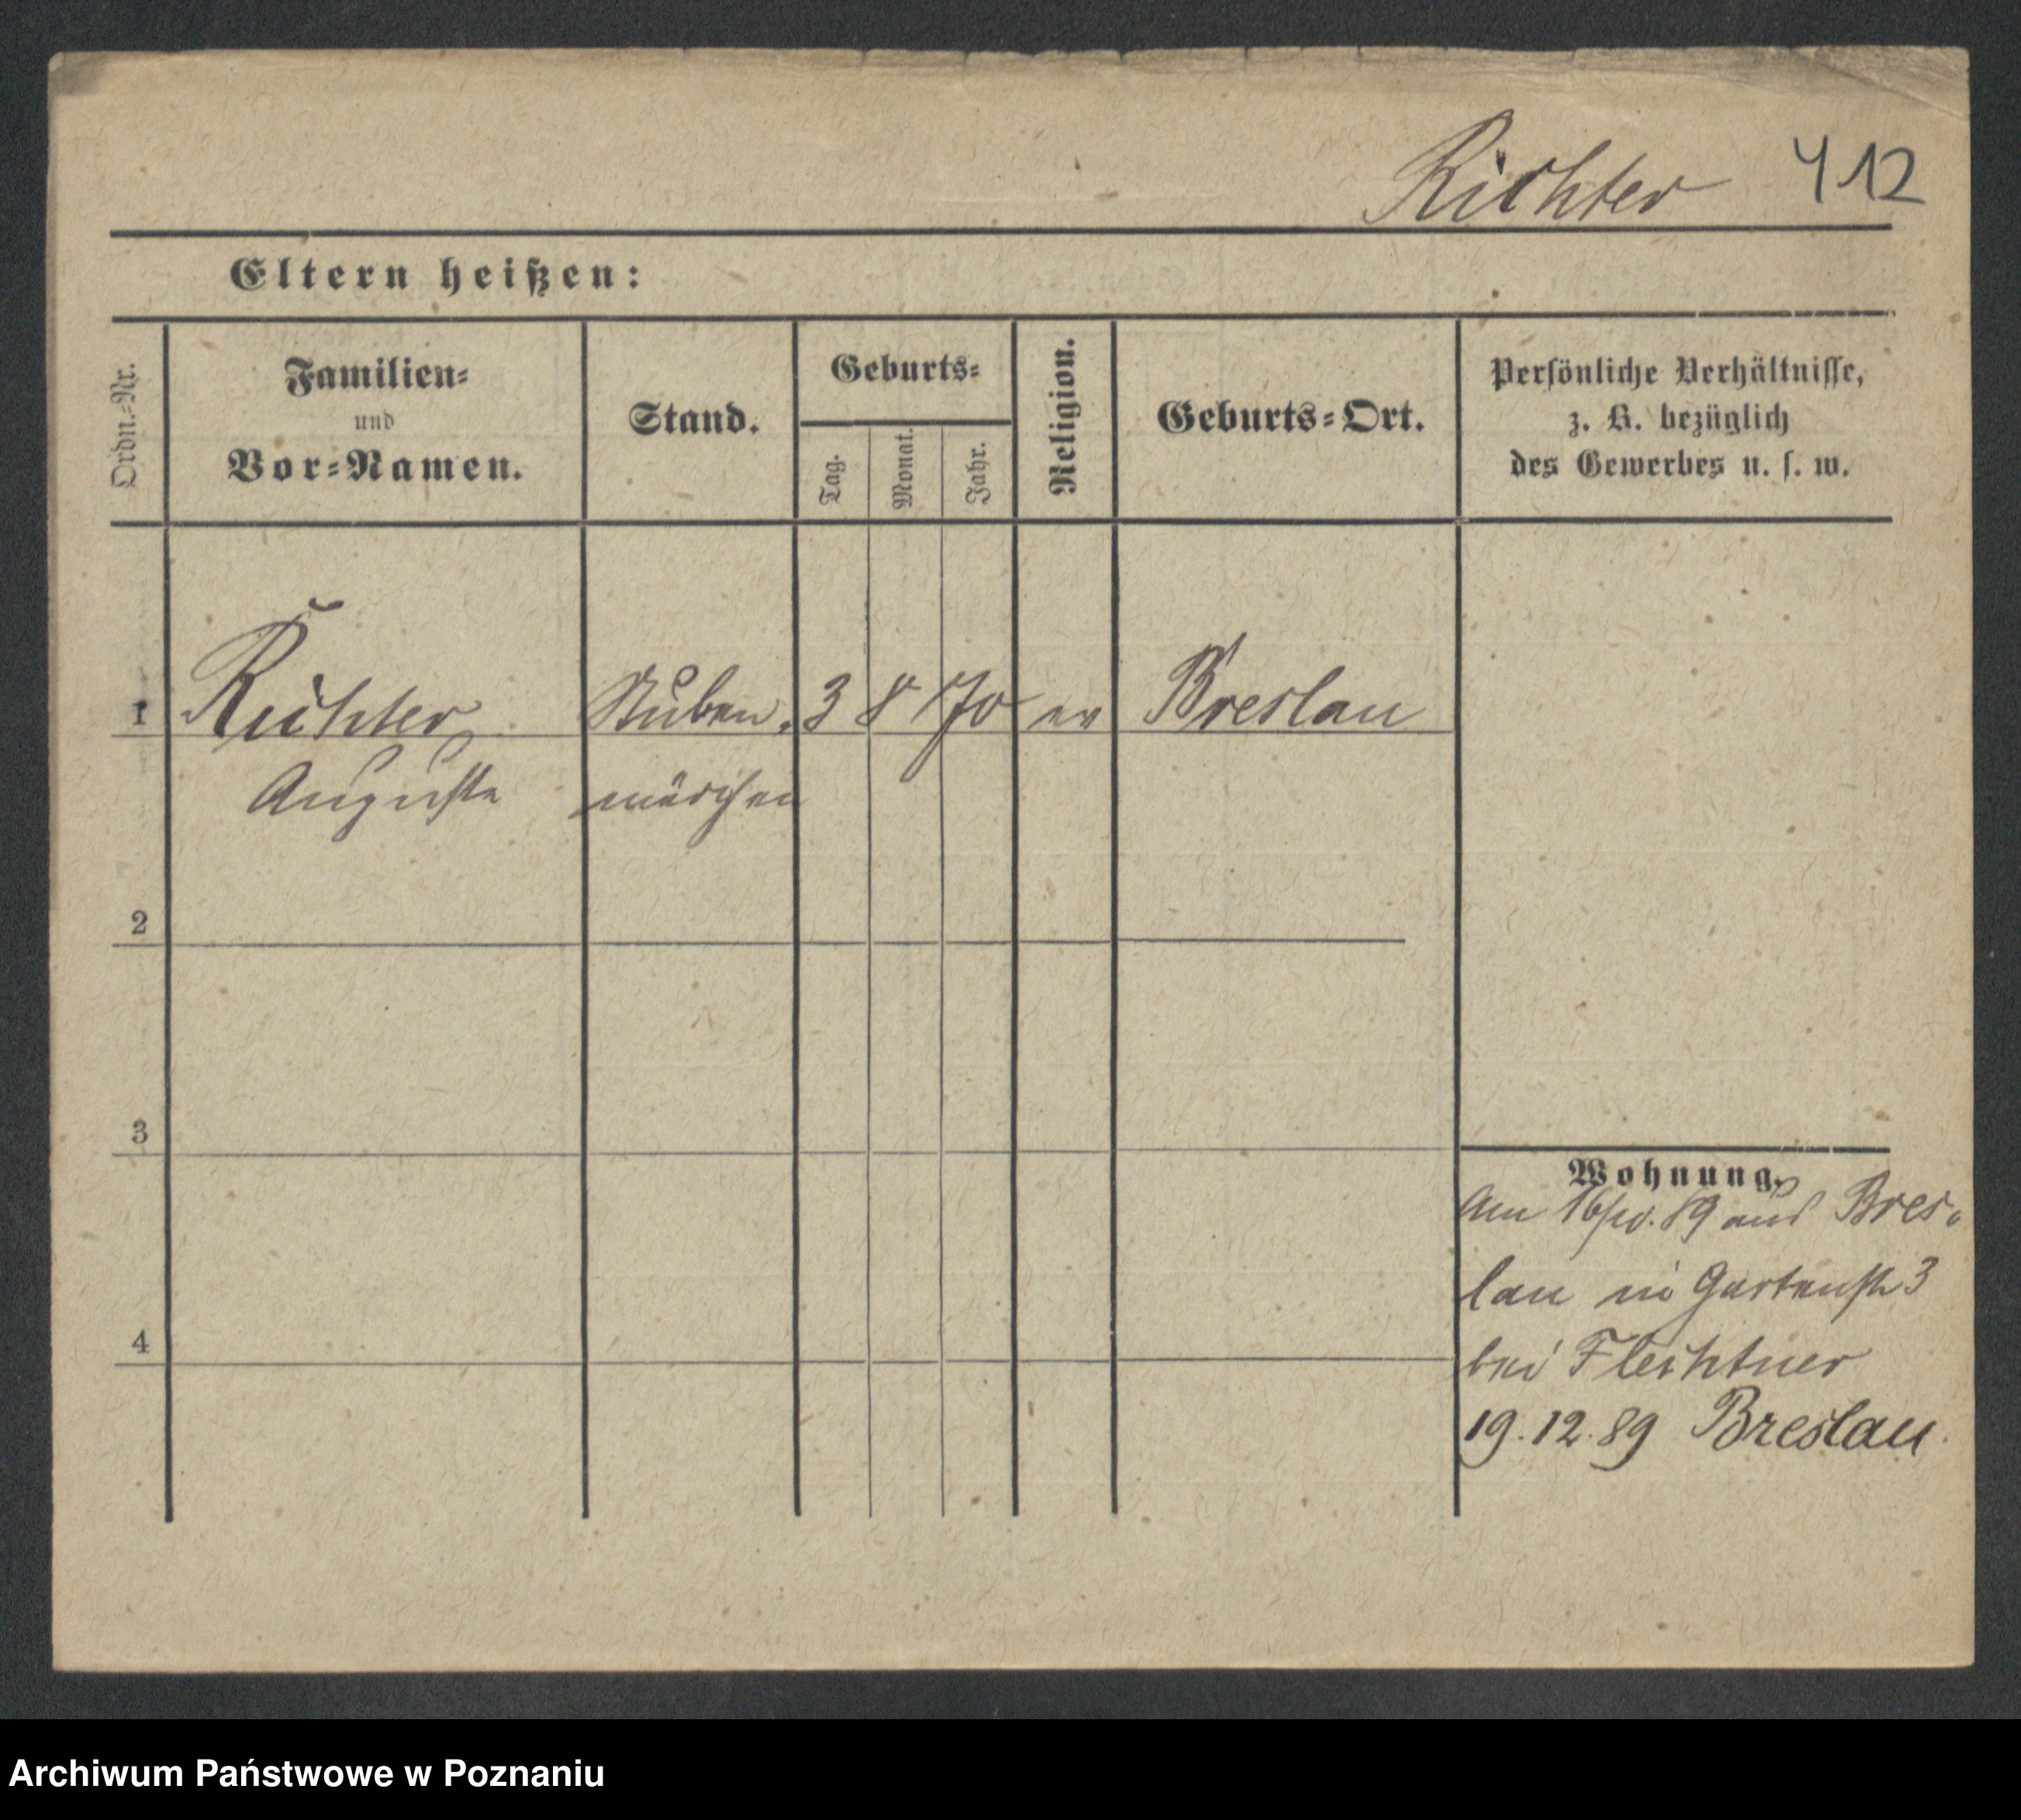 Richter 412
Eltern heißen:
Ordn.=Nr.
Familien=
und
Vor=Namen.
Stand.
Geburts=
Tag.
Monat.
Jahr.
Religion.
Geburts=Ort.
Persönliche Verhältnisse,
z. B. bezüglich
des Gewerbes u. s. w.
1 Richter Stuben= 3 8 70 ev Breslau
Auguste mädchen
2
3
4
Wohnung.
Am 16/10. 89 aus Bres=
lau in Gartenstr 3
bei Fleihtner
19.12.89 Breslau.
Archiwum Państwowe w Poznaniu